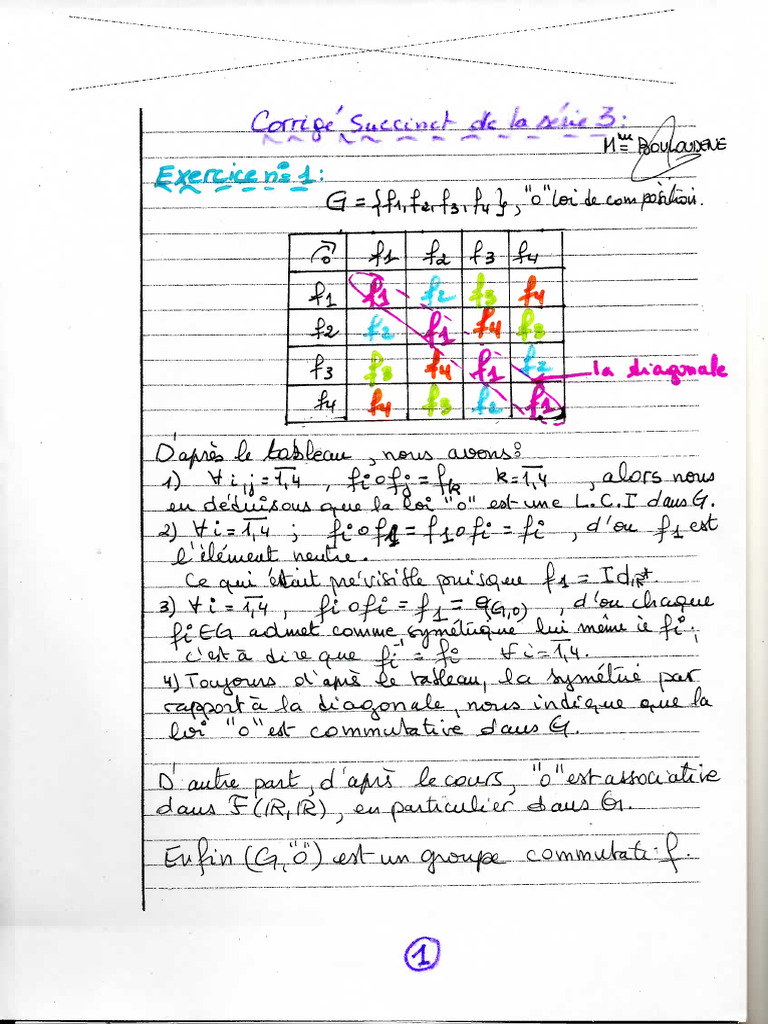 Corrigé Succinct de la série 3:
Mme BOULOUDENE
Exercice n° 1:
G = {f1, f2, f3, f4}, "o" loi de composition.
o f1 f2 f3 f4
f1 f1 f2 f3 f4
f2 f2 f1 f4 f3
f3 f3 f4 f1 f2
la diagonale
f4 f4 f3 f2 f1
D'après le tableau, nous avons:
1) ∀ i,j = 1,4 , fi o fj = fk k = 1,4 , alors nous
en déduisons que la loi "o" est une L.C.I dans G.
2) ∀ i = 1,4 ; fi o f1 = f1 o fi = fi , d'ou f1 est
l'élément neutre.
Ce qui était prévisible puisque f1 = Id ℝ*.
3) ∀ i = 1,4 , fi o fi = f1 = e(G,o) , d'ou chaque
fi ∈ G admet comme symétrique lui même ie fi ;
c'est à dire que fi⁻¹ = fi ∀ i = 1,4.
4) Toujours d'après le tableau, la symétrie par
rapport à la diagonale, nous indique que la
loi "o" est commutative dans G.
D'autre part, d'après le cours, "o" est associative
dans F(ℝ,ℝ), en particulier dans G.
Enfin (G,"o") est un groupe commutatif.
1